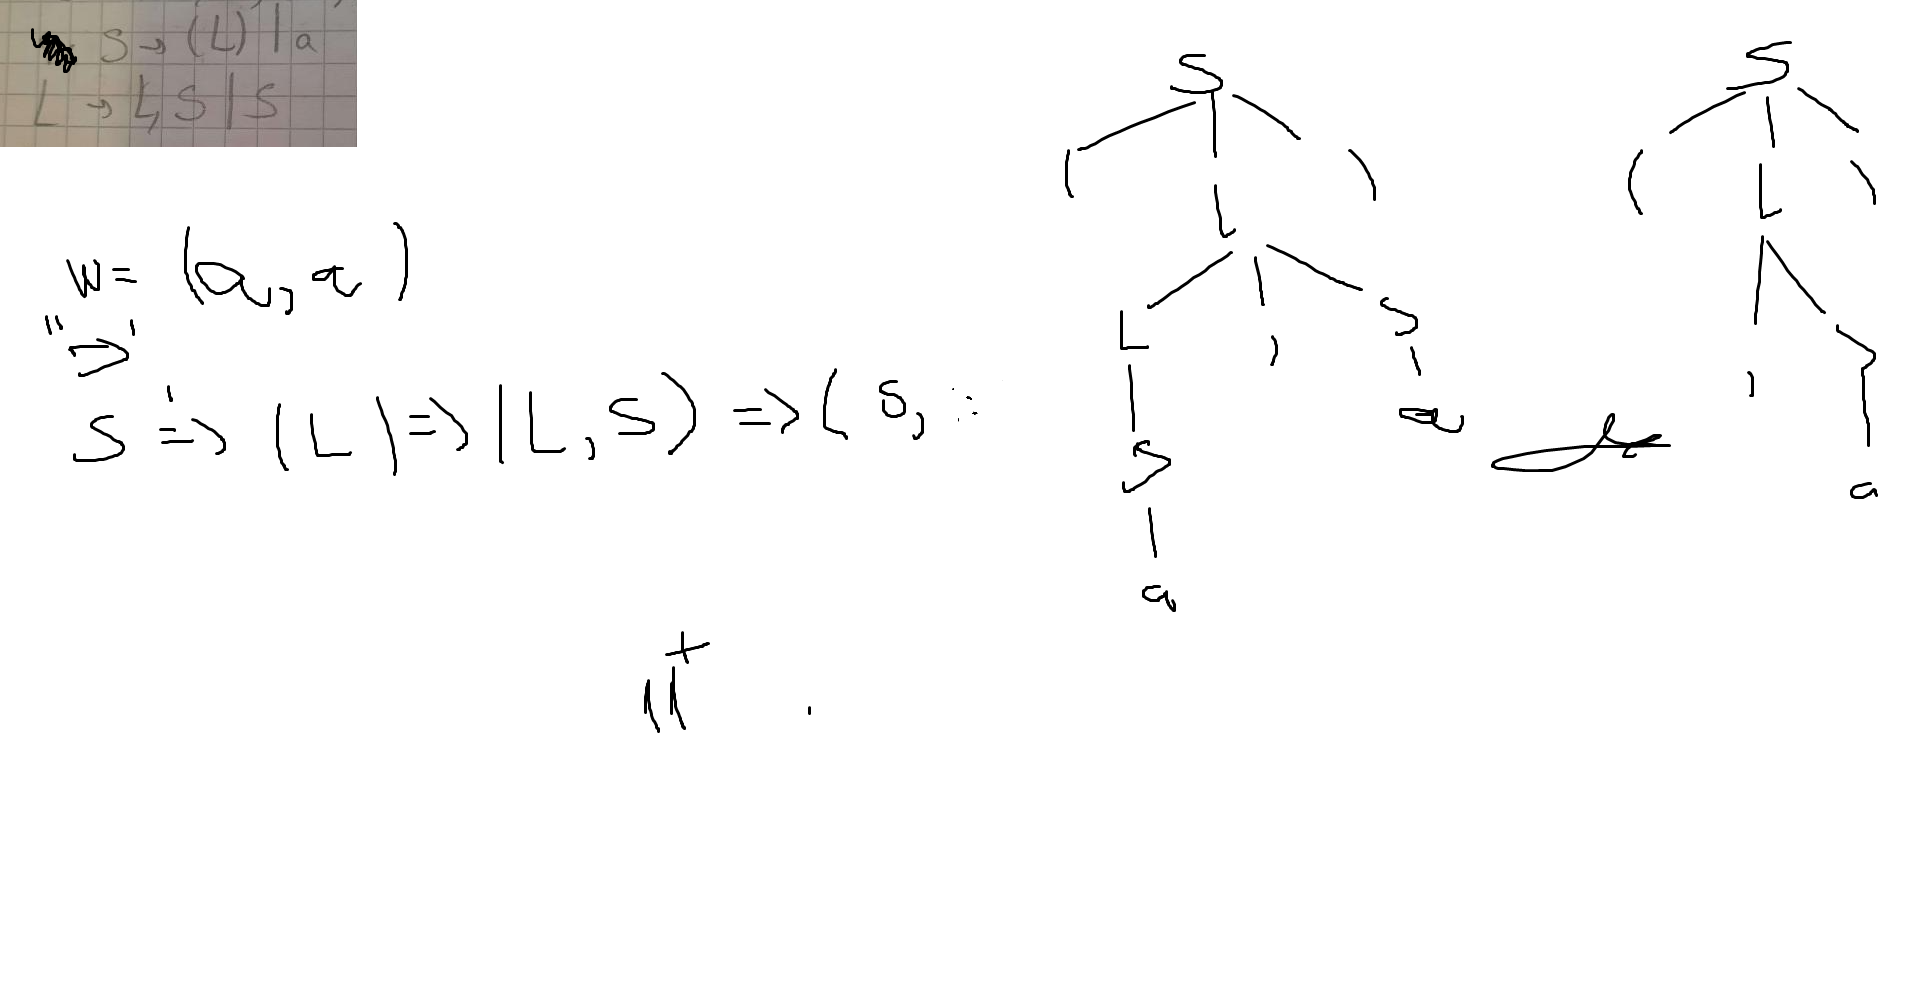 S → (L) | a
L → L, S | S
w = (a, a)
"⇒"
S ⇒ (L) ⇒ (L, S) ⇒ (S,
S
( L )
L , S
a
S
a
S
( L )
, S
a
+